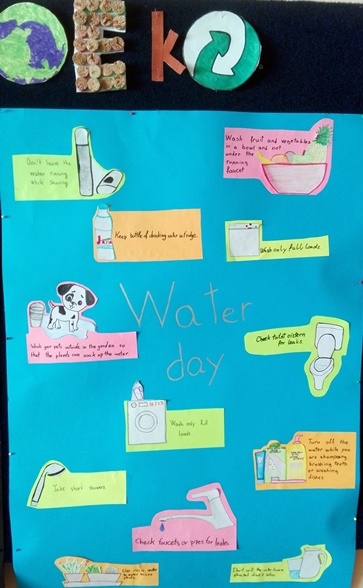 Eko
Don't leave the
water running
while shaving
Wash fruit and vegetables
in a bowl and not
under the
running
faucet
Keep bottle of drinking water in fridge.
Wash only full loads
Water
day
Wash your pets outside in the garden so
that the plants can soak up the water
Check toilet cistern
for leaks
Wash only full
loads
Turn off the
water while you
are shampooing
brushing teeth
or washing
dishes
Take short showers
Check faucets or pipes for leaks